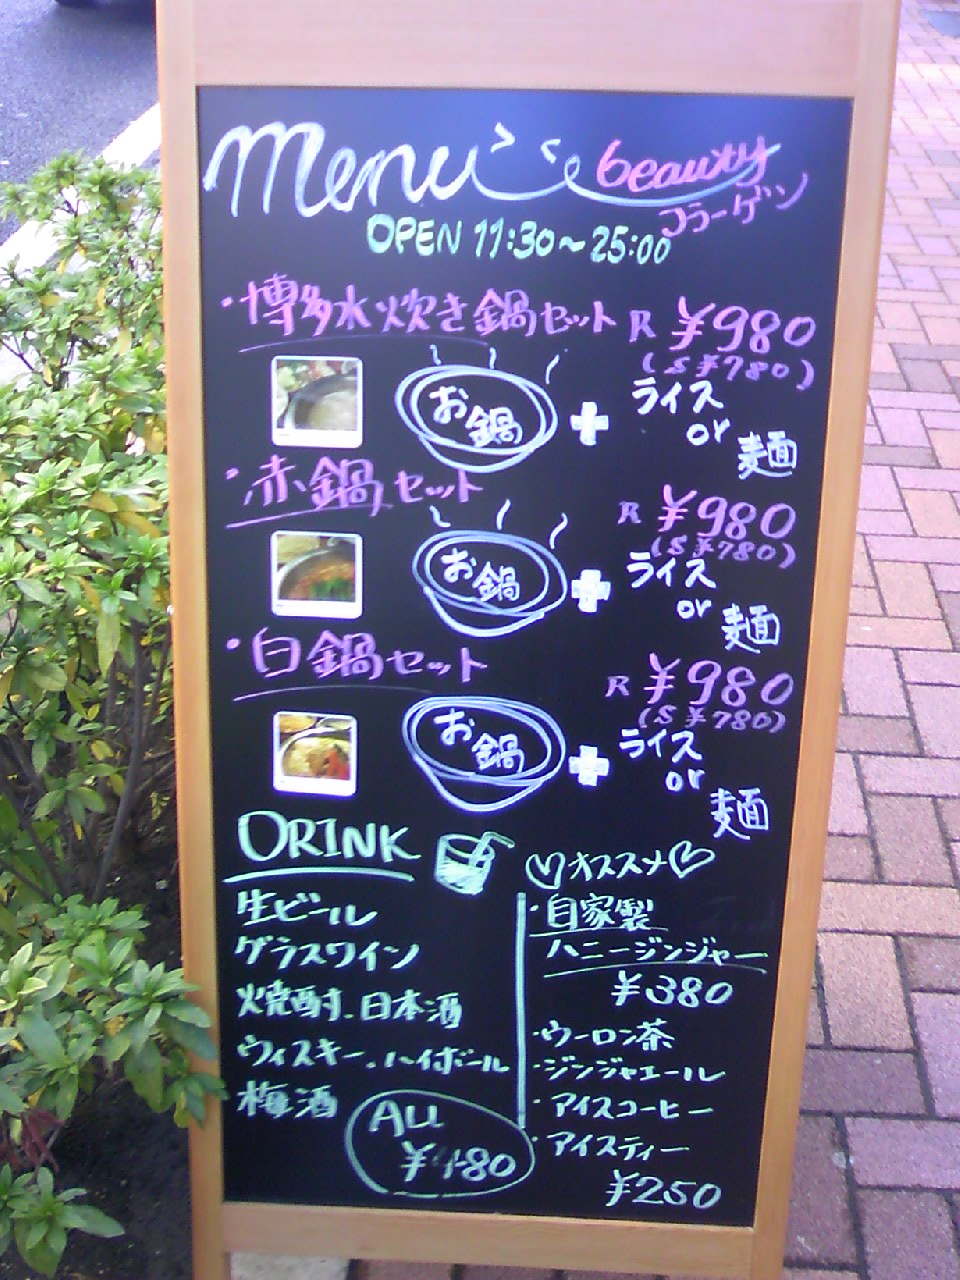 menu
beauty
コラーゲン
OPEN 11:30～25:00
・博多水炊き鍋セット R ¥980
(S ¥780)
お鍋 + ライス or 麺
・赤鍋セット R ¥980
(S ¥780)
お鍋 + ライス or 麺
・白鍋セット R ¥980
(S ¥780)
お鍋 + ライス or 麺
DRINK
生ビール
グラスワイン
焼酎・日本酒
ウィスキー・ハイボール
梅酒
ALL
¥480
♡オススメ♡
・自家製
ハニージンジャー
¥380
・ウーロン茶
・ジンジャエール
・アイスコーヒー
・アイスティー
¥250